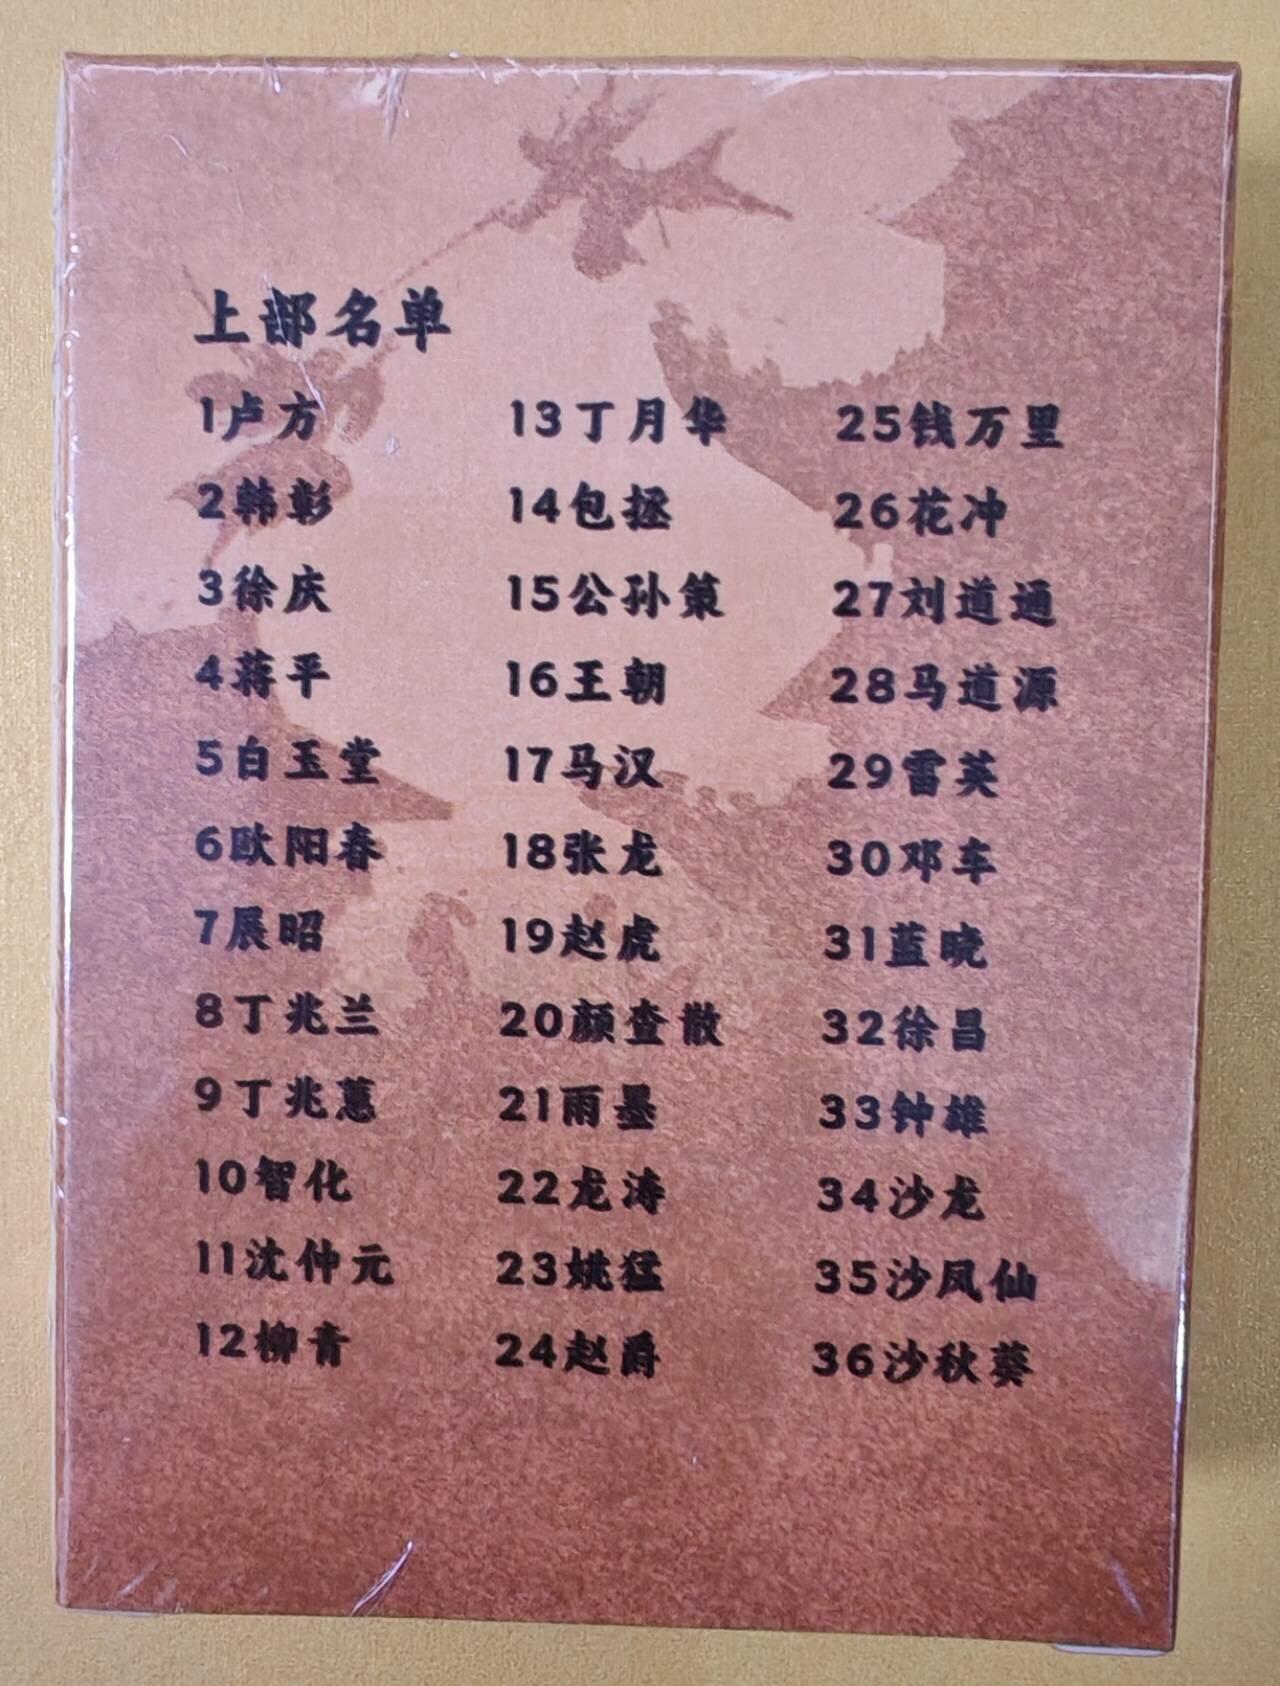 上部名单
1卢方
2韩彰
3徐庆
4蒋平
5白玉堂
6欧阳春
7展昭
8丁兆兰
9丁兆蕙
10智化
11沈仲元
12柳青
13丁月华
14包拯
15公孙策
16王朝
17马汉
18张龙
19赵虎
20颜查散
21雨墨
22龙涛
23姚猛
24赵爵
25钱万里
26花冲
27刘道通
28马道源
29雷英
30邓车
31蓝晓
32徐昌
33钟雄
34沙龙
35沙凤仙
36沙秋葵